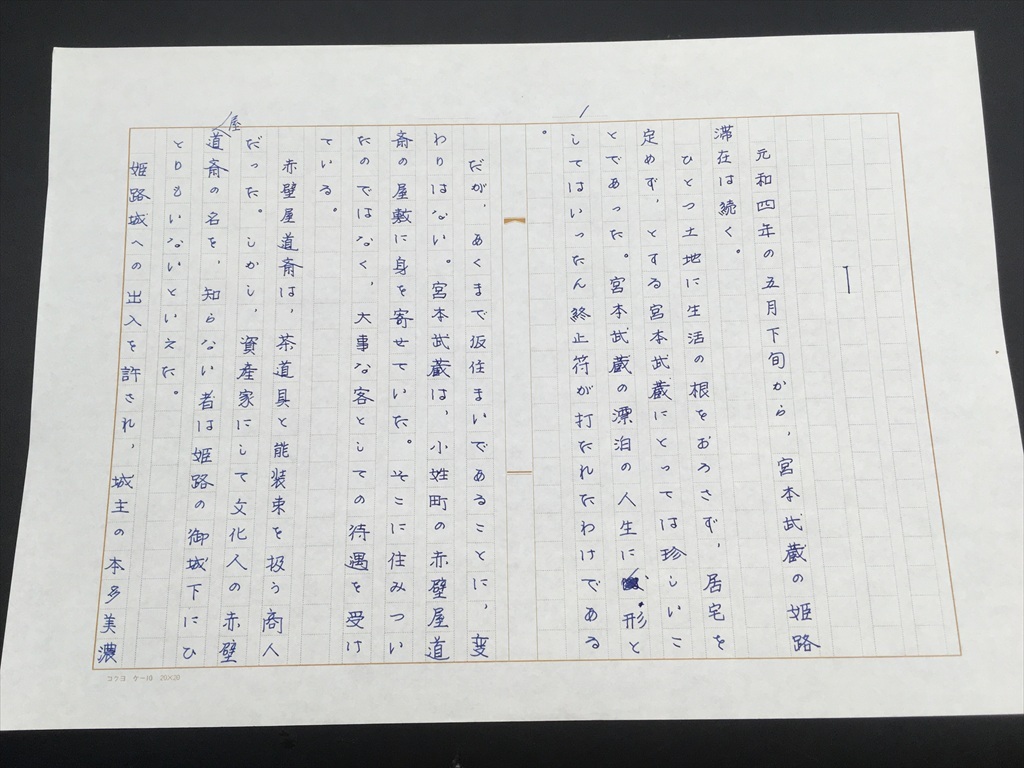 I
元和四年の五月下旬から、宮本武蔵の姫路
滞在は続く。
ひとつ土地に生活の根をおろさず、居宅を
定めず、とする宮本武蔵にとっては珍しいこ
とであった。宮本武蔵の漂泊の人生に、形と
してはいったん終止符が打たれたわけである
。
だが、あくまで仮住まいであることに、変
わりはない。宮本武蔵は、小姓町の赤壁屋道
斎の屋敷に身を寄せていた。そこに住みつい
たのではなく、大事な客としての待遇を受け
ている。
赤壁屋道斎は、茶道具と能装束を扱う商人
だった。しかし、資産家にして文化人の赤壁
屋道斎の名を、知らない者は姫路の御城下にひ
とりもいないといえた。
姫路城への出入を許され、城主の本多美濃
コクヨ ケ-10 20×20